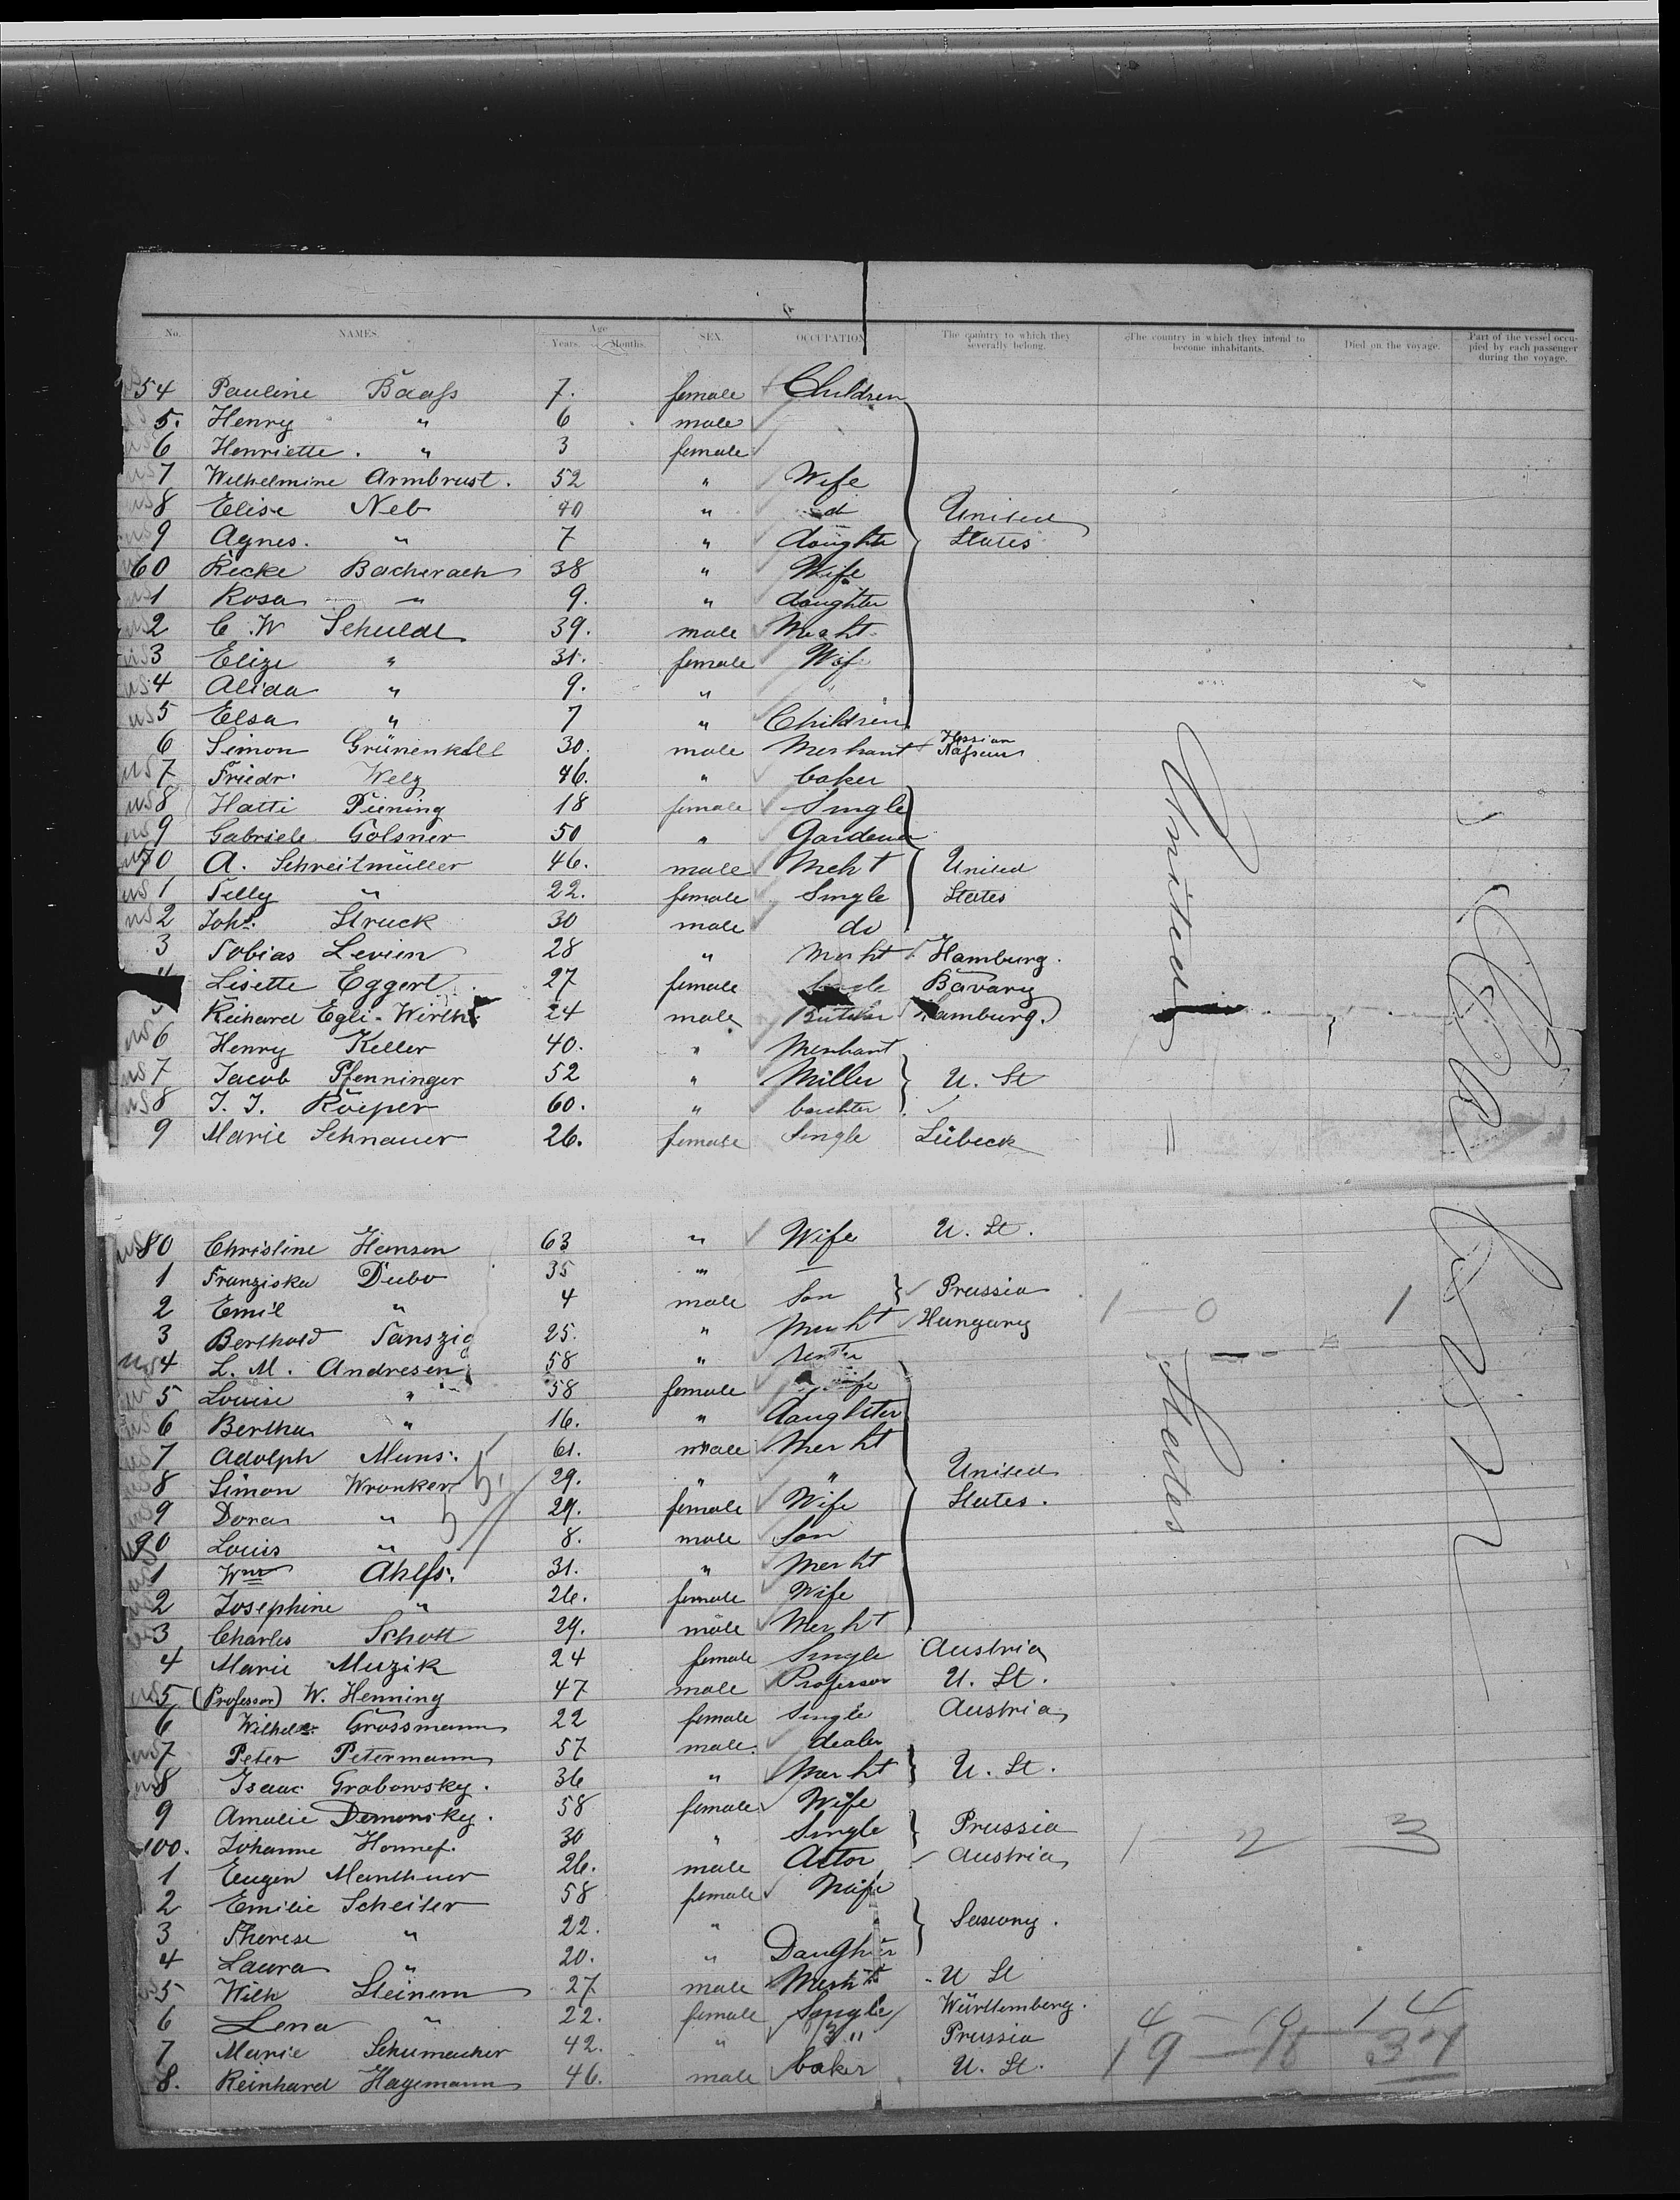 No. NAMES. Age Years. Months. SEX. OCCUPATION The country to which they severally belong. The country in which they intend to become inhabitants. Died on the voyage. Part of the vessel occupied by each passenger during the voyage.
54 Pauline Baass 7. female Children
5. Henry " 6 male
6 Henriette . " 3 female
7 Wilhelmine Armbrust . 52 " Wife
8 Elise Neb 40 " d United
9 Agnes. " 7 " daughter States
60 Ricke Bacherach 38 " Wife
1 Rosa " 9. " daughter
2 C. W Schuldt 39. male Mercht.
3 Elize " 31. female Wife
4 Alida " 9. "
5 Elsa " 7 " Children
6 Simon Grünenkell 30. male Merchant Hessian Nassau
7 Friedr. Welz 46. " baker
8 Hatti Piening 18 female Single
9 Gabriele Golsner 50 " Gardener
70 A. Schreitmüller 46. male Mcht United
1 Tilly " 22. female Single States
2 Joh. Struck 30 male do
3 Tobias Levien 28 " Mercht Hamburg.
4 Lisette Eggert 27 female Single Bavary
Richard Egli-Wirth 24 male Butcher Hamburg.
6 Henry Keller 40. " Merchant
7 Jacob Pfenninger 52 " Miller U. St
8 J. J. Röeper 60. "
9 Marie Schnauer 26. female Single Lübeck
80 Christine Hansen 63 " Wife U. St.
1 Franziska Dubo 35 " —
2 Emil " 4 male Son Prussia 1 0 1
3 Berthold Tanszig 25. " Mercht Hungary
4 L. M. Andresen 58 "
5 Louise " 58 female Wife
6 Bertha " 16. " daughter
7 Adolph Muns. 61. male Mercht
8 Simon Wronker 29. " " United
9 Dora " 29. female Wife States.
90 Louis " 8. male Son
1 Wm Ahlfs. 31. " Mercht
2 Josephine " 26. female Wife
3 Charles Schott 29. male Mercht
4 Marie Muzik 24 female Single Austria
5 (Professor) W. Henning 47 male Professor U. St.
6 Wilhel. Grossmann 22 female Single Austria
7 Peter Petermann 57 male. dealer
8 Isaac Grabowsky. 36 " Mercht U. St.
9 Amalie Demonsky. 58 female Wife
100. Johanne Honnef. 30 " Single Prussia 1 2 3
1 Eugen Manthner 26. male Actor Austria
2 Emilie Scheiter 58 female Wife
3 Therese " 22. " Saxony.
4 Laura " 20. " Daughter
5 Wilh Steinem 27 male Mercht U St
6 Lena " 22. female Single Württemberg. 4 10 14
7 Marie Schumacher 42. " " Prussia
8. Reinhard Hagemann 46. male baker U. St. 19 — 18 37
United States